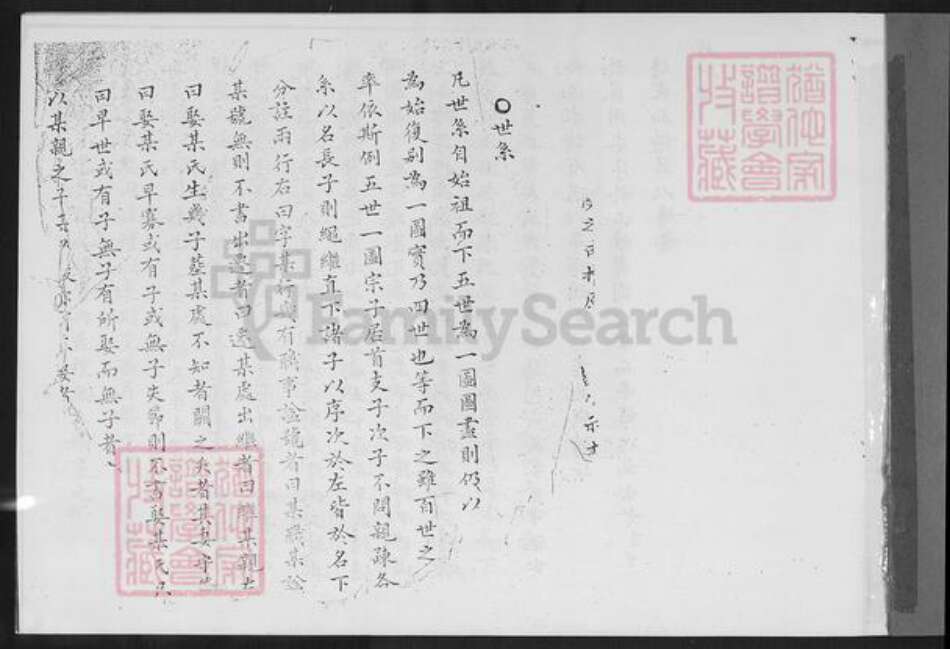 世系
凡世系自始祖而下五世為一圖圖盡則仍以
為始復別為一圖實乃四世也等而下之雖百世之
率依斯例五世一圖宗子居首支子次子不問親疎各
系以名長子則繩繼直下諸子以序次於左皆於名下
分註兩行右曰字某行 有職事諡號者曰某職某諡
某號無則不書出遷者曰遷某處出繼者曰 某親
曰娶某氏生幾子葬某處不知者闕之夫者其妻守
曰娶某氏早寡或有子或無子失節則不書娶某氏
曰早世或有子無子有所娶而無子者
以某親之子
猶他家譜學會收藏
猶他家譜學會收藏
FamilySearch